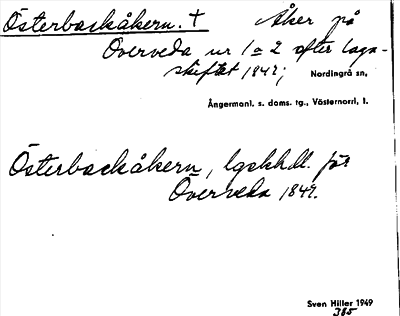 Österbackåkern. † Åker på
Överveda nr 1 o 2 efter laga
skiftet 1849;
Nordingrå sn,
Ångermanl. s. doms. tg., Västernorrl. l.
Österbackåkern, lgskhdl. för
Överveda 1849.
Sven Hiller 1949
385